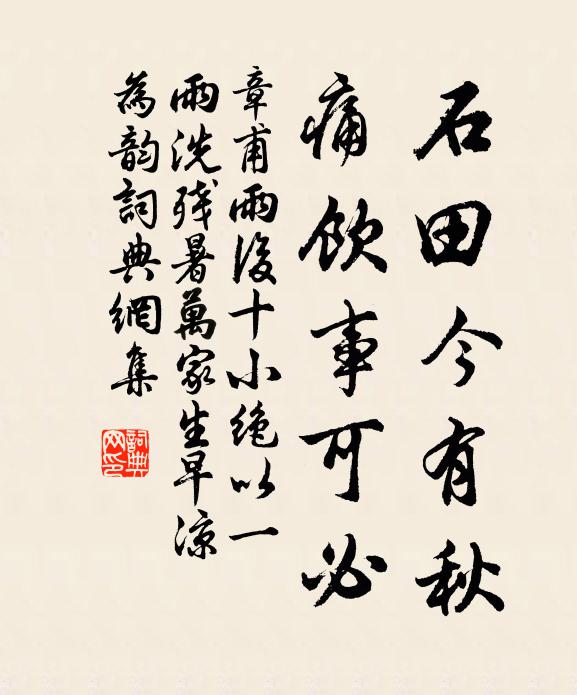 石田今有秋
痛飲事可必
章甫雨後十小絶以一
雨洗残暑萬家生早凉
為韵詞典網集
詞典
网印